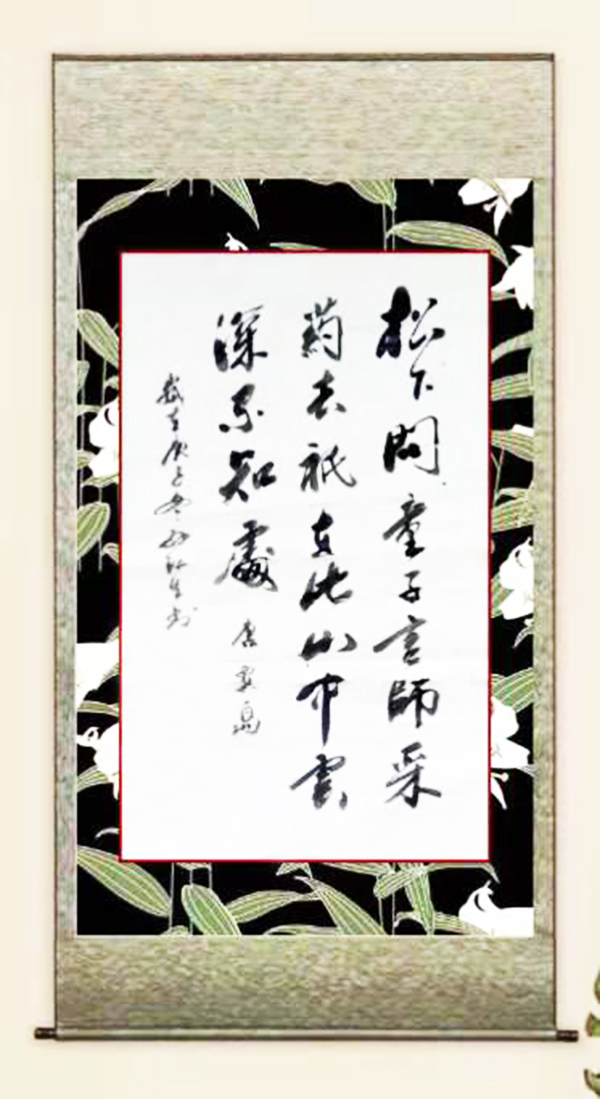 松下問童子言師采
葯去祇在此山中雲
深不知處 唐賈島
歲在庚子冬